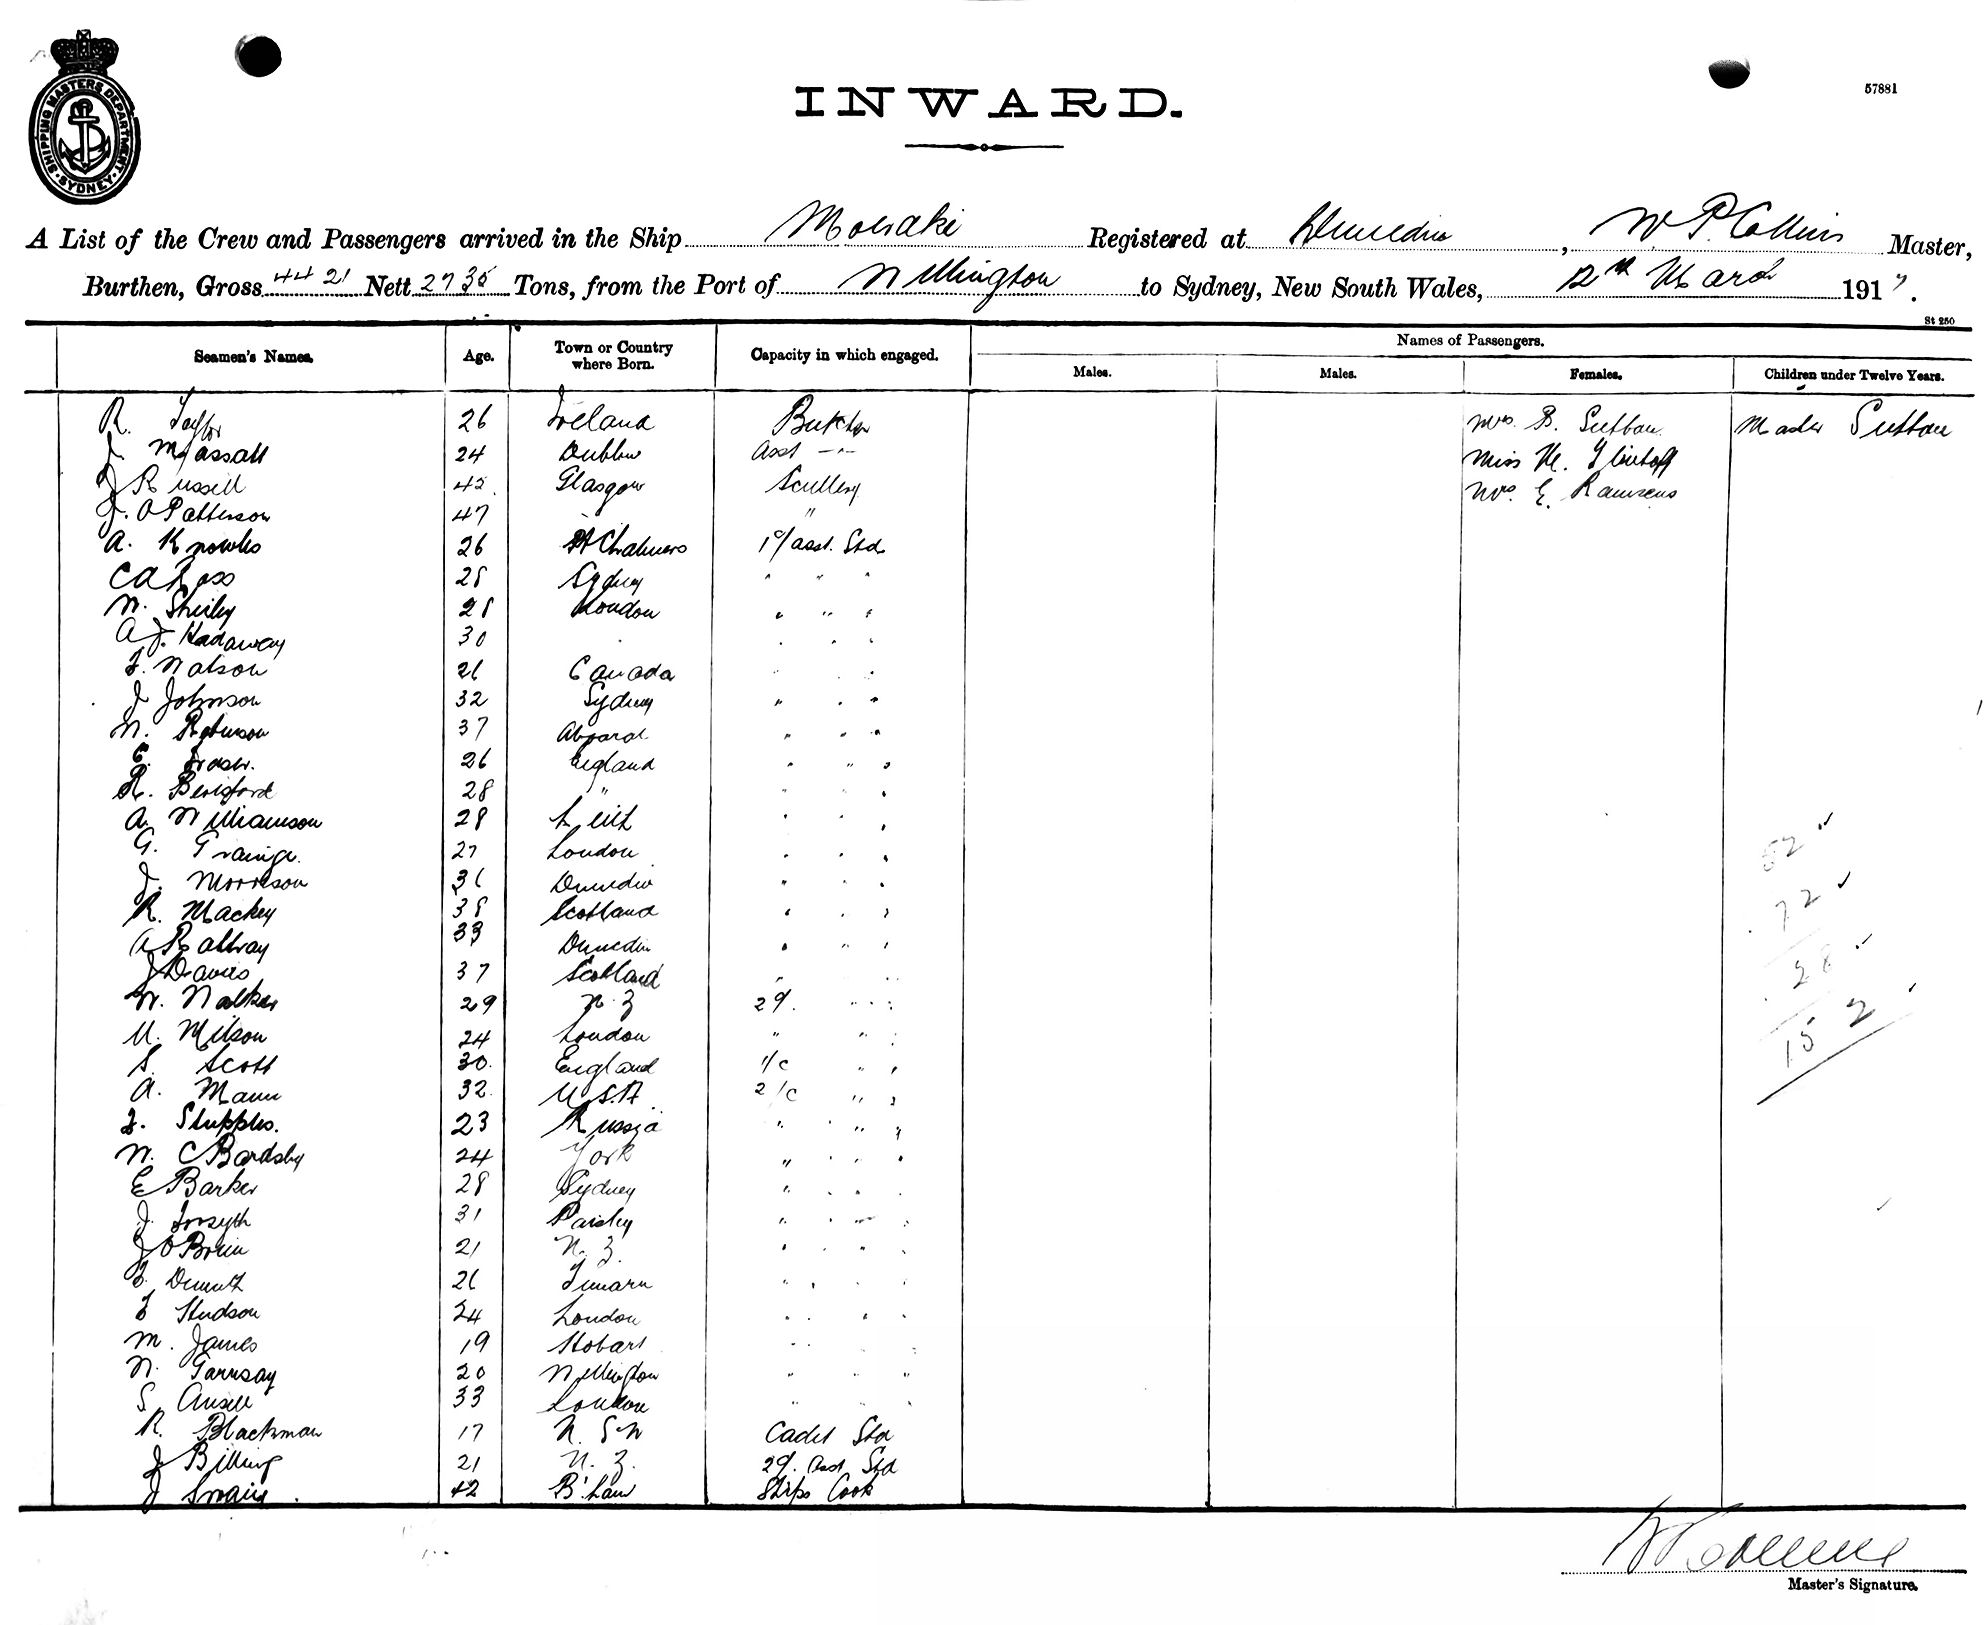 SHIPPING MASTERS DEPARTMENT · SYDNEY ·
57881
INWARD.
A List of the Crew and Passengers arrived in the Ship Moeraki Registered at Dunedin, W P. Collins Master,
Burthen, Gross 4421 Nett 2735 Tons, from the Port of Wellington to Sydney, New South Wales, 12th March 1917.
St 250
Seamen's Names. Age. Town or Country where Born. Capacity in which engaged. Names of Passengers.
Males. Males. Females. Children under Twelve Years.
R. Taylor 26 Ireland Butcher Mrs. B. Sutton Master Sutton
J 24 Dublin Asst -"- Miss M.
J Russell 45 Glasgow Scullery Mrs. E.
J. O Patterson 47 "
A. Knowles 26 Pt Chalmers 1/ asst. Std
C A Ross 28 Sydney " " "
W. Shirley 28 London " " "
A J. Hadaway 30 " " " "
F. Watson 26 Canada " " "
J Johnson 32 Sydney " " "
W. Robinson 37 " " "
E. Fraser. 26 England " " "
R. Berisford 28 " " " "
A. Williamson 28 Leith " " "
G. Grainger. 27 London " " "
J. Morrison 36 Dunedin " " "
R. Mackey 38 Scotland " " "
A Rattray 33 Dunedin " " "
J Davies 37 Scotland " " "
W. Walker 29 N. Z 2/. " "
W. Wilson 24 London " " "
S. Scott 30. England 1/c " "
A. Mann 32. U.S.A 2/c " "
F. Stupples. 23 Russia " " "
W. C Bardsley 24 York " " "
E Barker 28 Sydney " " "
J. Forsyth 31 Paisley " " "
J O Brien 21 N. Z. " " "
26 Timaru " " "
F Hudson 24 London " " "
M. James 19 Hobart " " "
W. 20 Wellington " " "
S Ansell 33 London " " "
R. Blackman 17 N. S W Cadet Std
J Billing 21 N. Z. 2/. Asst Std
J Swain. 42 B'ham Ships Cook
52
72
28
152
W P Collins
Master's Signature.